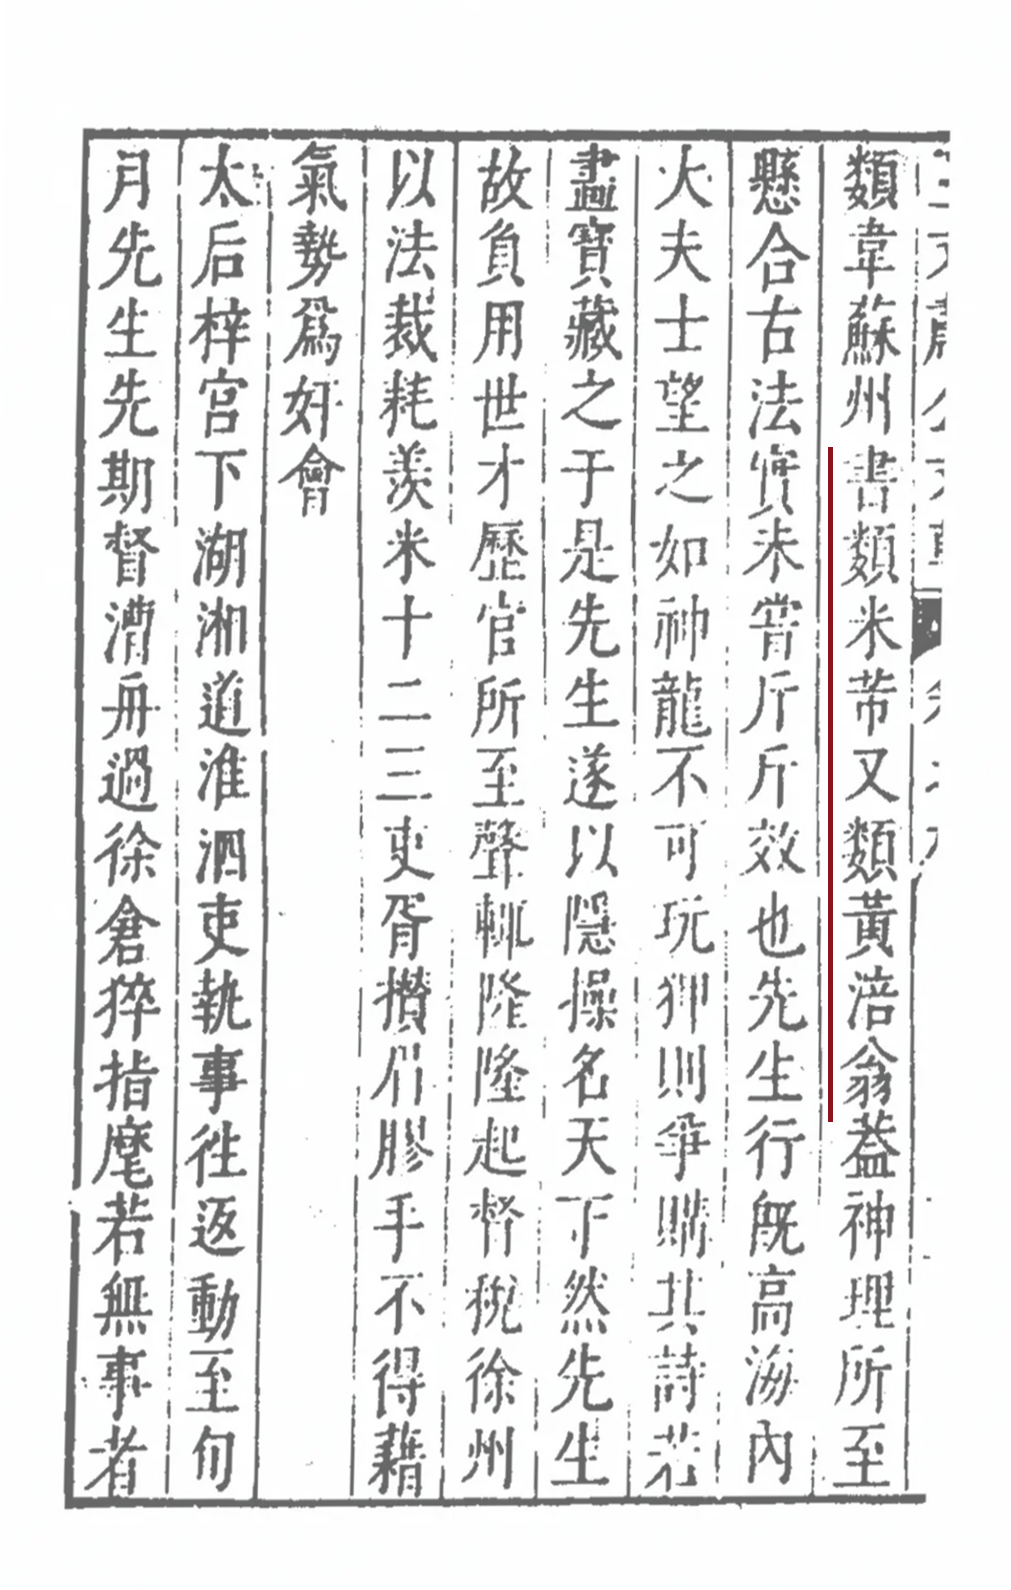 類韋蘇州書類米芾又類黃涪翁葢神理所至
懸合古法實未嘗斤斤效也先生行旣高海內
大夫士望之如神龍不可玩狎則爭購其詩若
畫寶藏之于是先生遂以隱操名天下然先生
故負用世才歷官所至聲輒隆隆起督稅徐州
以法裁耗羨米十二三吏胥攢眉膠手不得藉
氣勢爲奸會
太后梓宮下湖湘道淮泗吏執事徃返動至旬
月先生先期督漕舟過徐倉猝指麾若無事者